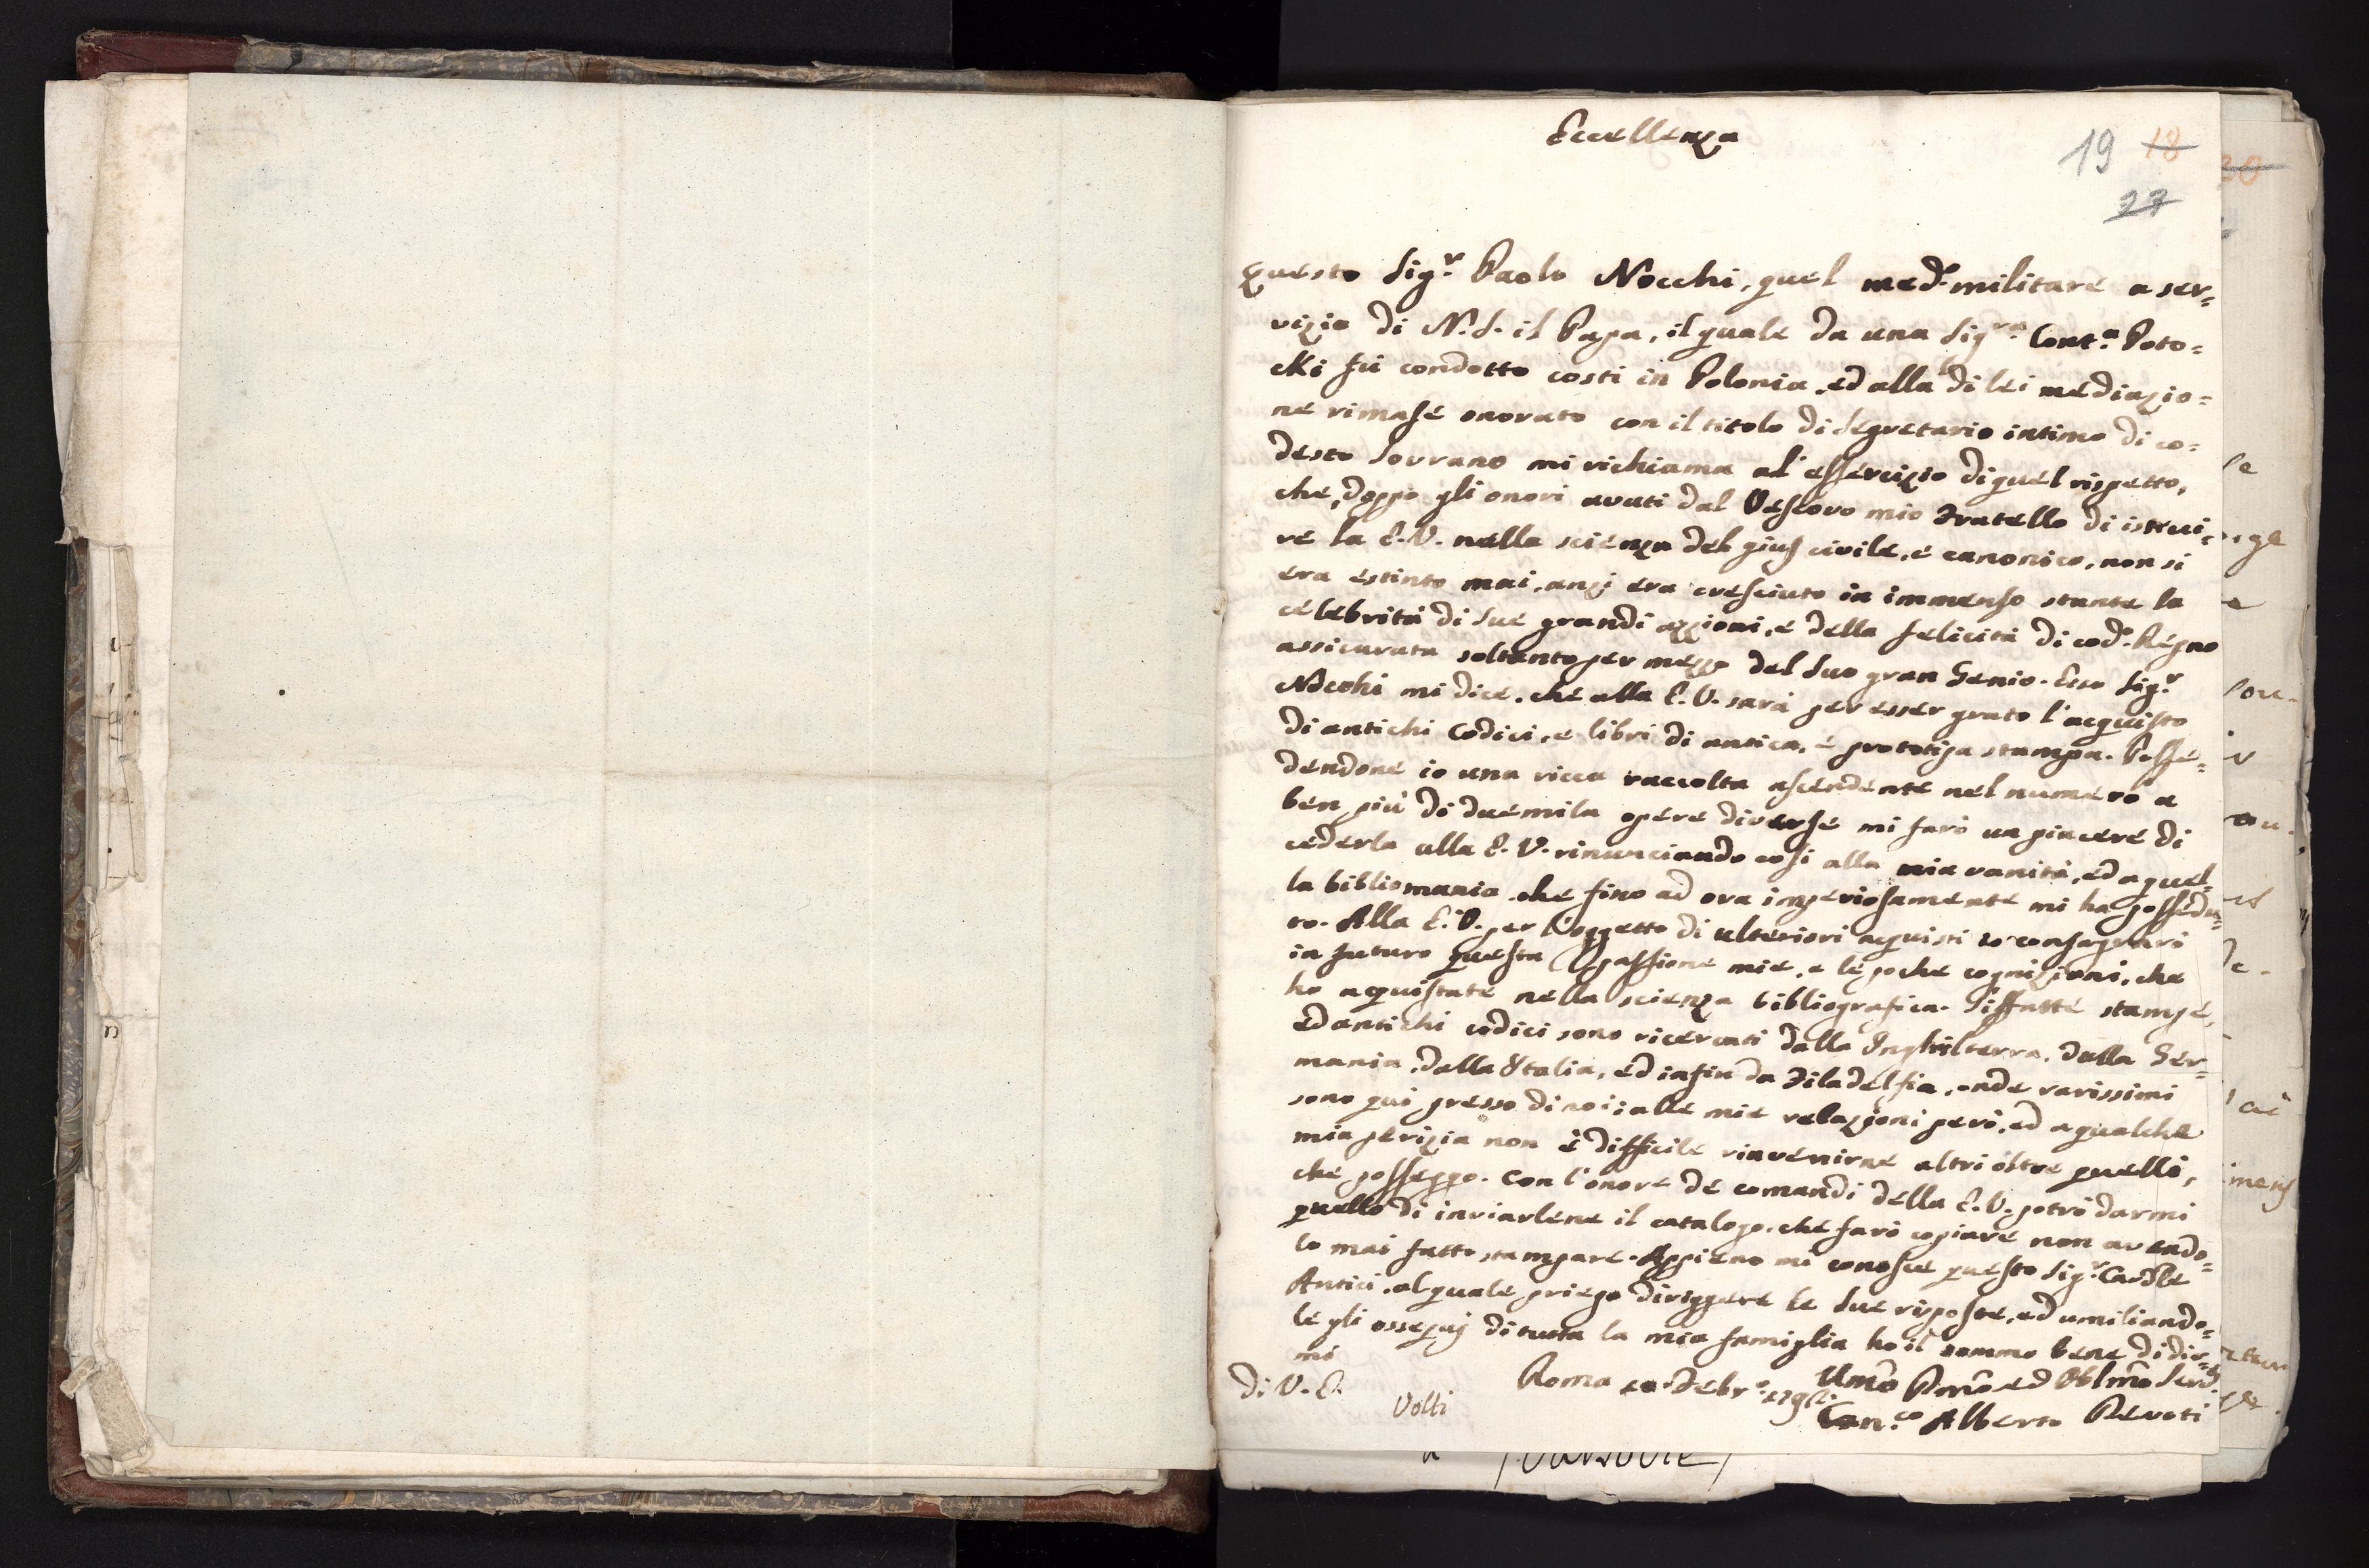 Eccellenza
19 18
27
30
Questo Sig.r Paolo Nocchi, quel med.o militare a ser=
vizio di N. S. il Papa, il quale da una Sig.ra Cont.a Poto=
cki fù condotto costi in Polonia, ed alla di lei mediazio=
ne rimase onorato con il titolo di Segretario intimo di co=
desto Sovrano mi richiama al' essercizio di quel rispetto,
che, doppo gli onori avuti dal Vescovo mio Fratello di istrui=
re la E. V. nella scienza del gius civile, e canonico, non si
era estinto mai, anzi era cresciuto in immenso stante la
celebrità di sue grandi azzioni, e della felicità di cod.o Regno
assicurata soltanto per mezzo del suo gran Genio. Esso Sig.r
Nocchi mi dice, che alla E. V. sarà per esser grato l'acquisto
di antichi Codici, e libri di antica, e prototipa stampa. Posse=
dendone io una ricca raccolta ascendente nel numero a
ben più di duemila opere diverse mi farò un piacere di
cederla alla E. V. rinunciando così alla mia vanità, ed a quel=
la bibliomania che fino ad ora imperiosamente mi ha possedu=
to. Alla E. V. per l'oggetto di ulteriori aquisti io consagrarò
in futuro questa passione mia, e le poche cognizioni, che
ho aquistate nella scienza bibliografica. Siffatte stampe,
ed antichi codici sono ricercati dalla Inghilterra, dalla Ger=
mania, dalla Italia, ed infin da Filadelfia, onde rarissimi
sono qui presso di noi; alle mie relazioni però, ed a qualche
mia perizia non è difficile rinvenirne altri oltre quelli,
che posseggo. Con l'onore de comandi della E. V. potrò darmi
quello di inviarlene il catalogo, che farò copiare non avendo=
lo mai fatto stampare. Appieno mi conosce questo Sig.r
Antici, al quale priego diriggere le sue risposte, ed umiliando=
le gli ossequj di tutta la mia famiglia ho il sommo bene di dir=
mi
Di V. E. Roma Febr.o Umo Dmo ed Oblmo Serv.
Volti Can.co Alberto Devoti